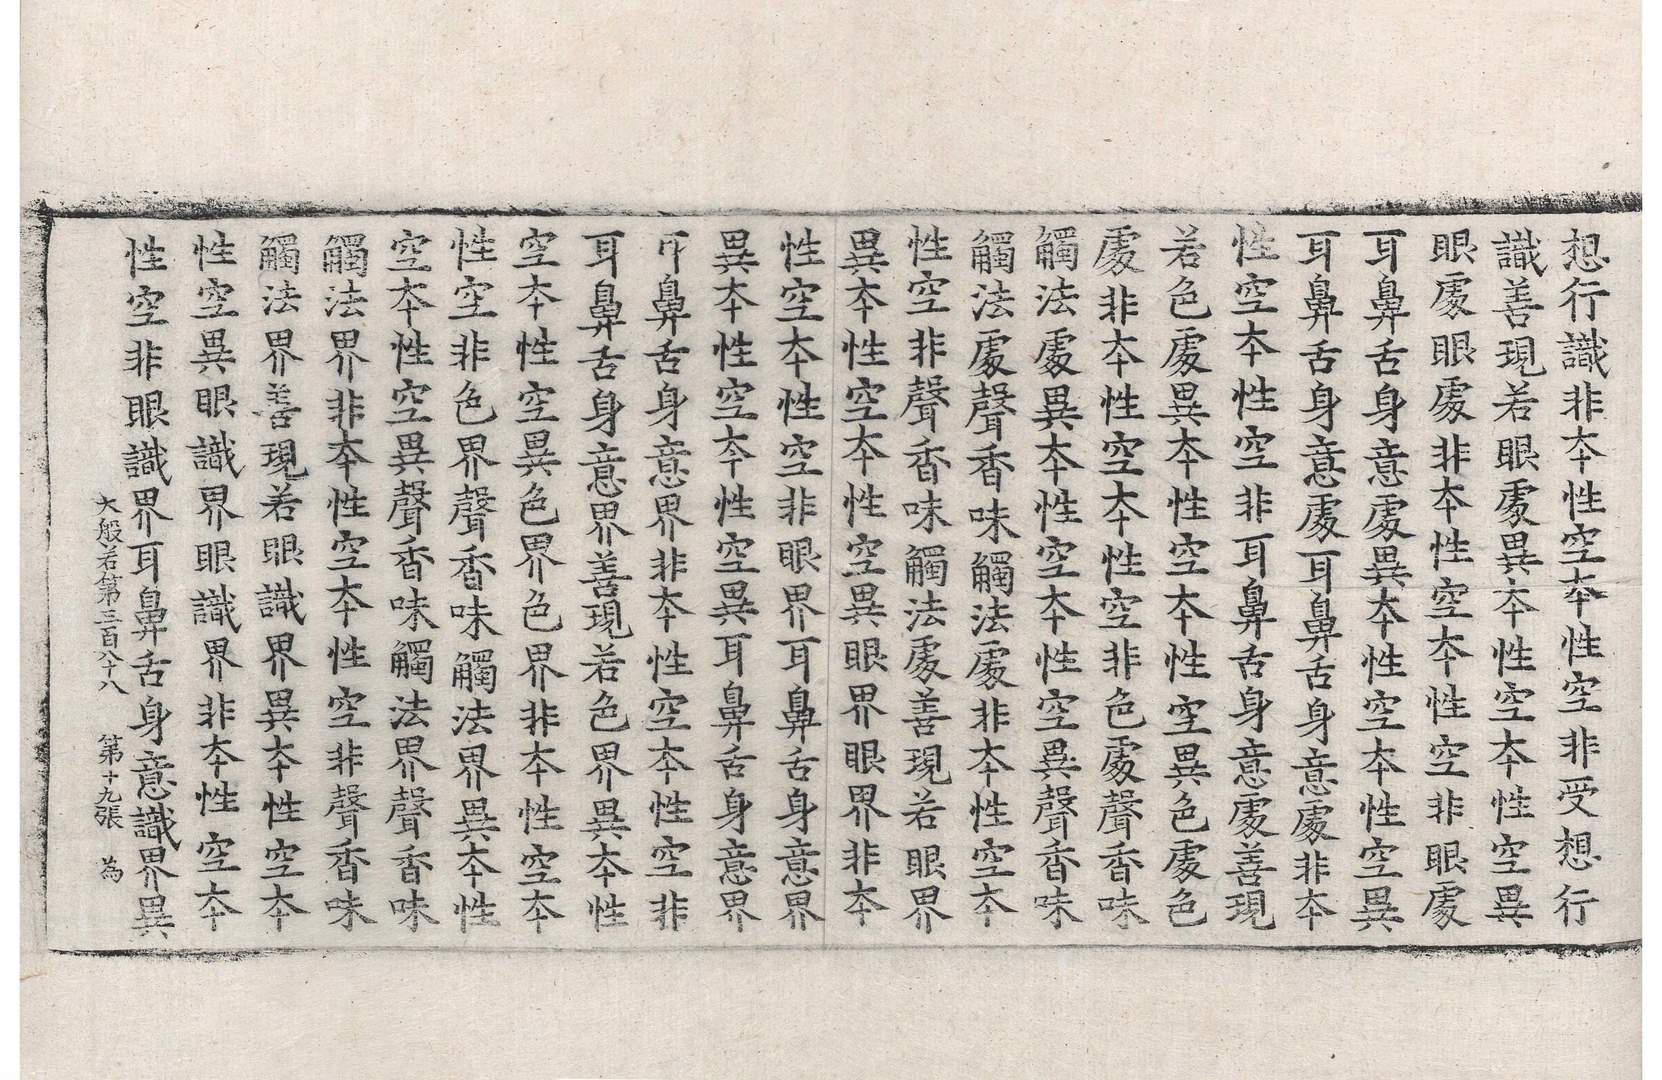 想行識非本性空本性空非受想行
識善現若眼處異本性空本性空異
眼處眼處非本性空本性空非眼處
耳鼻舌身意處異本性空本性空異
耳鼻舌身意處耳鼻舌身意處非本
性空本性空非耳鼻舌身意處善現
若色處異本性空本性空異色處色
處非本性空本性空非色處聲香味
觸法處異本性空本性空異聲香味
觸法處聲香味觸法處非本性空本
性空非聲香味觸法處善現若眼界
異本性空本性空異眼界眼界非本
性空本性空非眼界耳鼻舌身意界
異本性空本性空異耳鼻舌身意界
耳鼻舌身意界非本性空本性空非
耳鼻舌身意界善現若色界異本性
空本性空異色界色界非本性空本
性空非色界聲香味觸法界異本性
空本性空異聲香味觸法界聲香味
觸法界非本性空本性空非聲香味
觸法界善現若眼識界異本性空本
性空異眼識界眼識界非本性空本
性空非眼識界耳鼻舌身意識界異
大般若第三百八十八 第十九張 為